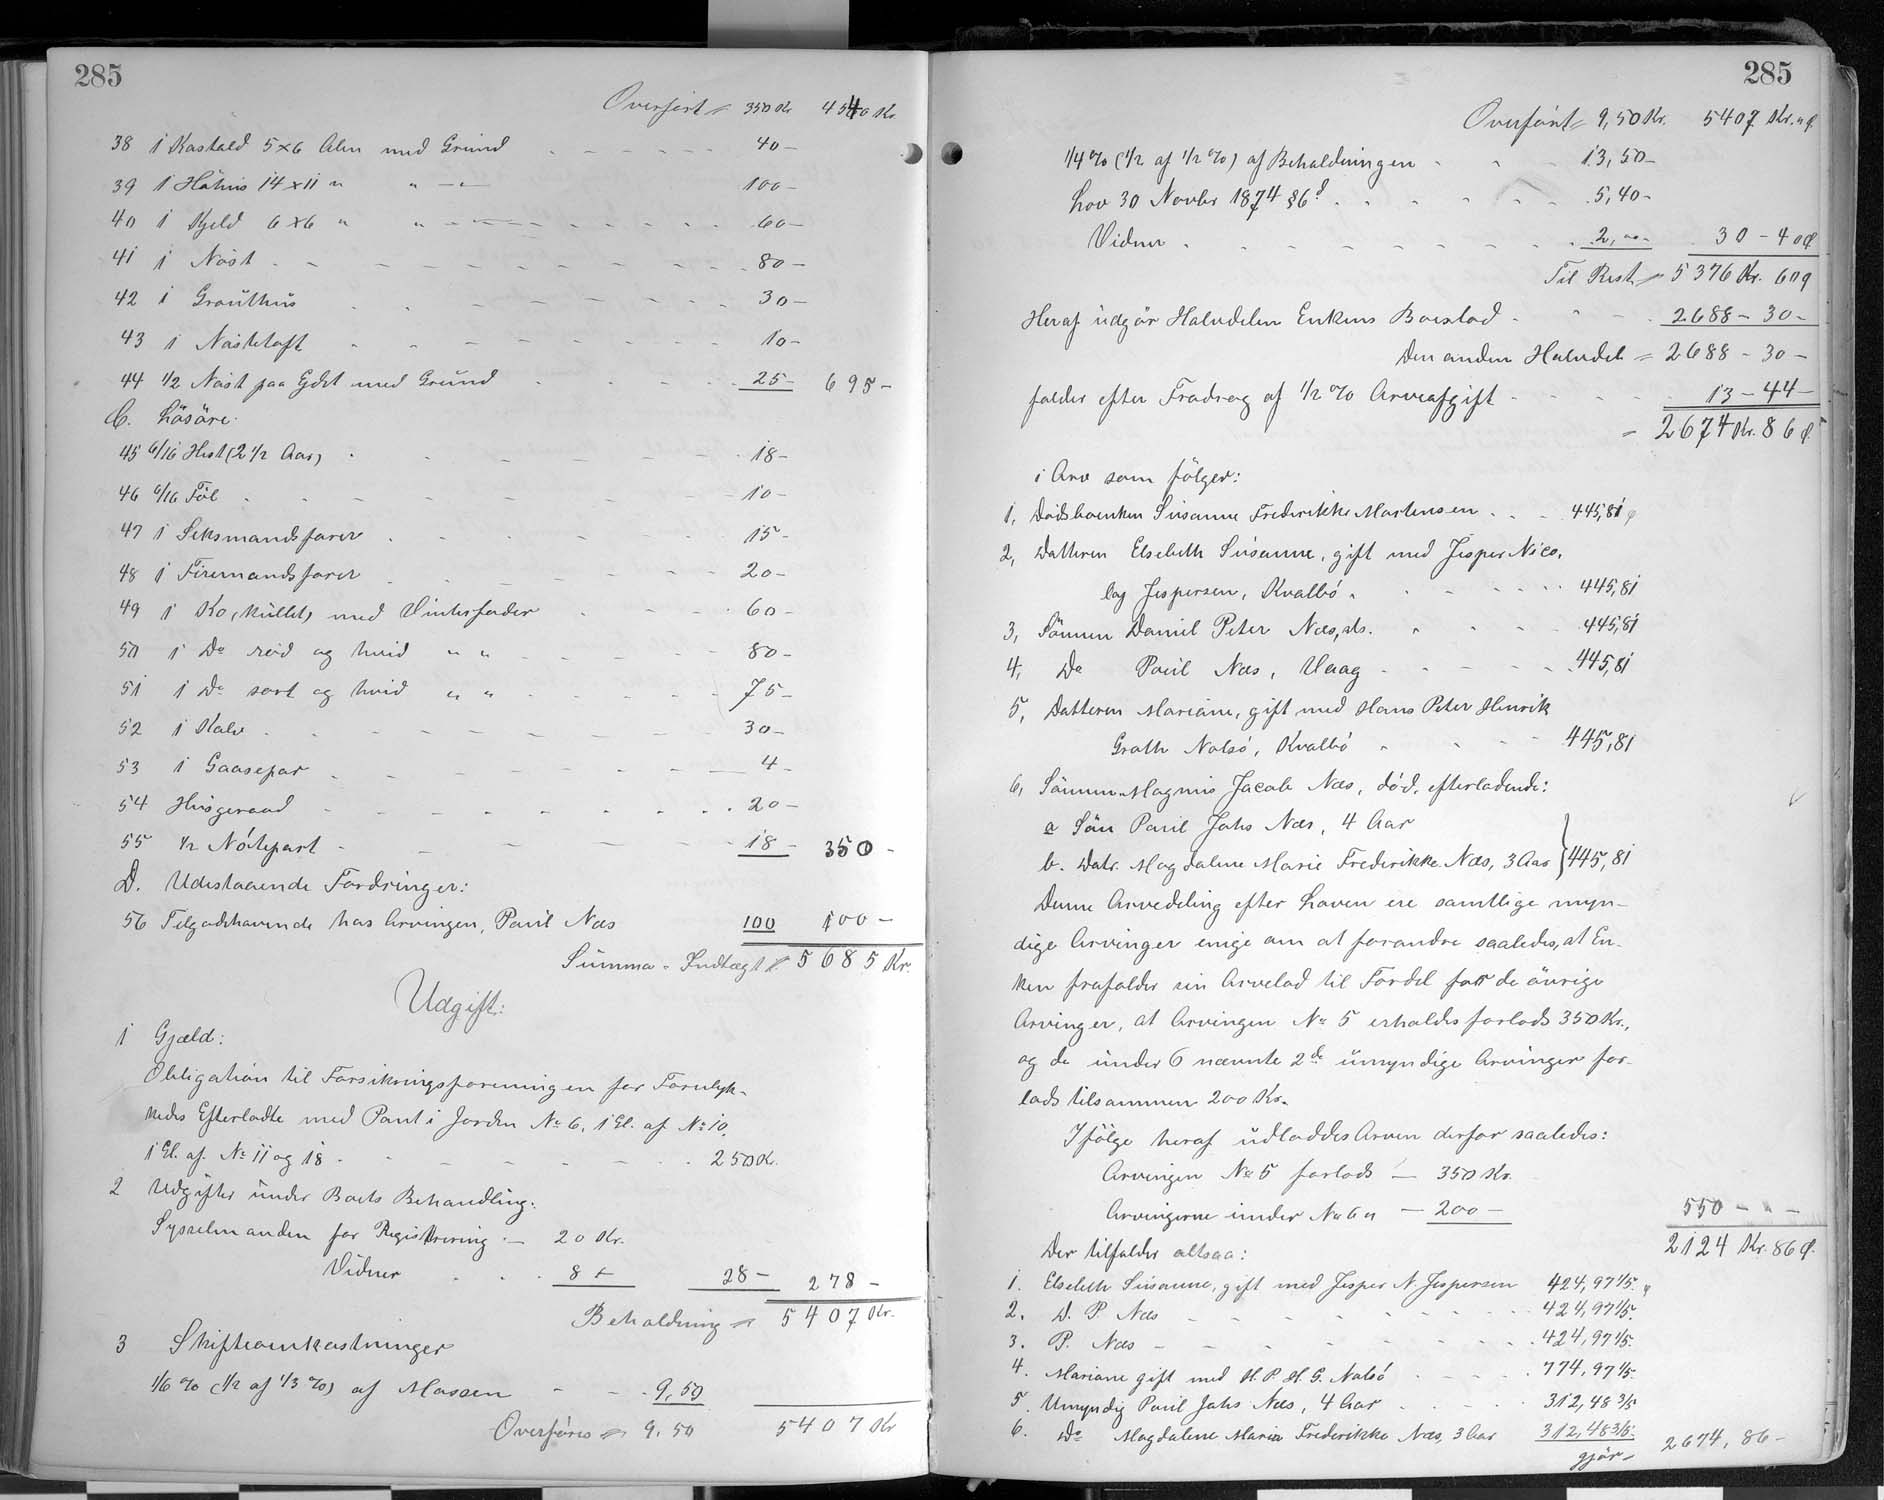 285
Overført = 350 Kr 4540 Kr.
38 1 Kostald 5×6 Alen med Grund - - - - - - 40 -
39 1 Höhus 14×11 " " - " - 100 -
40 1 Kjeld 6×6 " " - - - - - - 60 -
41 1 Nöst - - - - - - - - - 80 -
42 1 Grouthus - - - - - - - - 30 -
43 1 Nöstetoft - - - - - - - 10 -
44 1/2 Nöst paa Gdst med Grund - - - - 25 - 695 -
C. Lösöre:
45 6/16 Hest (2 1/2 Aar) - - - - - - 18 -
46 6/16 Föl - - - - - - - - 10 -
47 1 Seksmandsfarer - - - - - 15 -
48 1 Firemandsfarer - - - - - - 20 -
49 1 Ko (kullet) med Vinterfoder - - - - 60 -
50 1 Do röd og hvid " " - - - - - 80 -
51 1 Do sort og hvid " " - - - - - 75 -
52 1 Kalv - - - - - - - - 30 -
53 1 Gaasepar - - - - - - - 4 -
54 Husgeraad - - - - - - - - 20 -
55 1/2 Nótepart - - - - - - 18 - 350 -
D. Udestaaende Fordringer:
56 Tilgodehavende hos Arvingen, Poul Næs 100 100 -
Summa - Indtægt = 5685 Kr.
Udgift:
1 Gjæld:
Obligation til Forsikringsforeningen for Forulyk-
kedes Efterladte med Pant i Jorden No 6, 1 El. af No 10,
1 El. af No 11 og 18 - - - - - - - 250 Kr.
2 Udgifter under Boets Behandling:
Sysselmanden for Registrering - 20 Kr.
Vidner . . . 8 - 28 - 278 -
Beholdning = 5407 Kr.
3 Skifteomkostninger
1/6 % (1/2 af 1/3 %) af Massen - - - 9,50
Overføres = 9,50 5407 Kr
285
Overført = 9,50 Kr. 5407 Kr. " Ø.
1/4 % (1/2 af 1/2 %) af Beholdningen - - - 13,50 -
Lov 30 Novbr 1874 § 6 d - - - - - - 5,40 -
Vidner - - - - - - - - - 2,00 - 30 - 40 Ø
Til Rest = 5376 Kr. 60 Ø
Heraf udgör Halvdelen Enkens Boeslod - - - - 2688 - 30 -
Den anden Halvdel = 2688 - 30 -
falder efter Fradrag af 1/2 % Arveafgift - - - - - 13 - 44 -
= 2674 Kr. 86 Ø.
i Arv som fölger:
1, Dödsboenken Susanne Frederikke Mortensen . . . 445,81 Ø
2, Datteren Elsebeth Susanne, gift med Jesper Nico-
lay Jespersen, Kvalbö . - - - - - - 445,81
3, Sönnen Daniel Peter Næs, sts. - - - - 445,81
4, Do Poul Næs, Vaag - - - - - 445,81
5, Datteren Mariane, gift med Hans Peter Henrik
Groth Nolsö, Kvalbö - - - - 445,81
6, Sönnen Magnus Jacob Næs, död, efterladende:
a Sön Poul Johs Næs, 4 Aar
b. Datr. Magdalene Marie Frederikke Næs, 3 Aar } 445,81
Denne Arvedeling efter Loven ere samtlige myn-
dige Arvinger enige om at forandre saaledes, at En-
ken frafalder sin Arvelod til Fordel for de övrige
Arvinger, at Arvingen No 5 erholdes forlods 350 Kr.,
og de under 6 nævnte 2de umyndige Arvinger for-
lods tilsammen 200 Kr.
Ifölge heraf udloddes Arven derfor saaledes:
Arvingen No 5 forlods — 350 Kr.
Arvingerne under No 6 " — 200 - 550 - " -
2124 Kr. 86 Ø.
Der tilfalder altsaa:
1. Elsebeth Susanne, gift med Jesper N. Jespersen 424,97 1/5 "
2. D. P. Næs - - - - - - - 424,97 1/5.
3. P. Næs - - - - - - - - 424,97 1/5.
4. Mariane gift med H. P. H. G. Nolsö - - - - 774,97 1/5.
5. Umyndig Poul Johs Næs, 4 Aar - - - - 312,48 3/5
6. Do Magdalene Maria Frederikke Næs, 3 Aar 312,48 3/5.
gjör - 2674,86 -